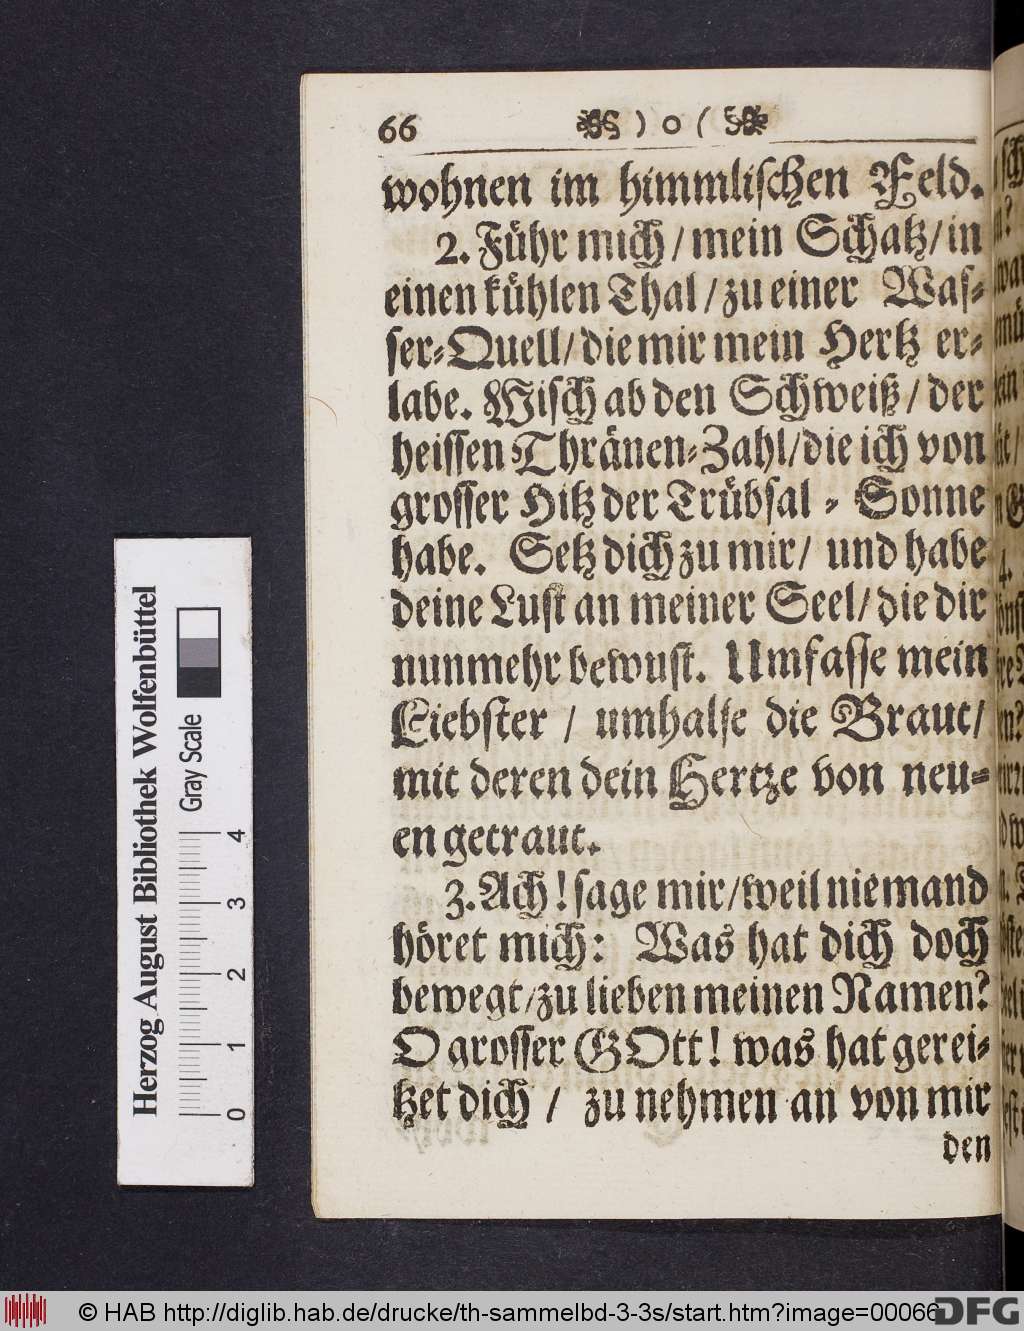 66 ) o (
wohnen im himmliſchen Feld.
2. Führ mich / mein Schatz / in
einen kühlen Thal / zu einer Waſ⸗
ſer⸗Quell / die mir mein Hertz er⸗
labe. Wiſch ab den Schweiß / der
heiſſen Thränen⸗Zahl / die ich von
groſſer Hitz der Trübſal ⸗ Sonne
habe. Setz dich zu mir / und habe
deine Luſt an meiner Seel / die dir
nunmehr bewuſt. Umfaſſe mein
Liebſter / umhalſe die Braut /
mit deren dein Hertze von neu⸗
en getraut.
3. Ach! ſage mir / weil niemand
höret mich: Was hat dich doch
bewegt / zu lieben meinen Namen?
O groſſer GOtt! was hat gerei⸗
tzet dich / zu nehmen an von mir
den
Herzog August Bibliothek Wolfenbüttel
Gray Scale
0 1 2 3 4
© HAB http://diglib.hab.de/drucke/th-sammelbd-3-3s/start.htm?image=00066
DFG